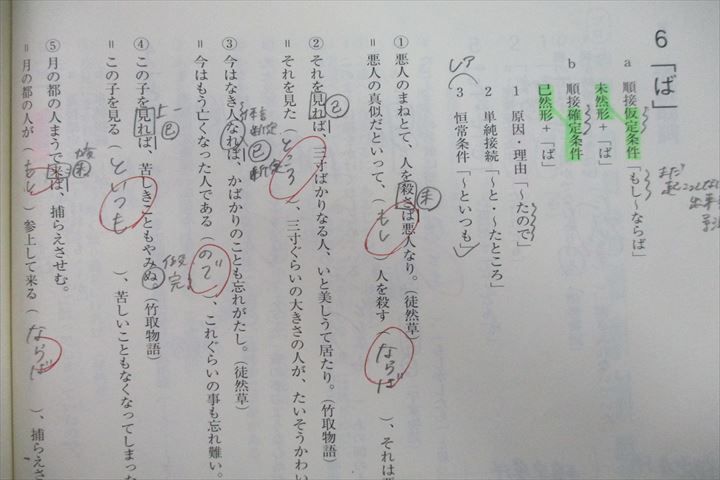 6 「ば」
a 順接仮定条件「もし～ならば」
未然形＋「ば」
まだ
b 順接確定条件
已然形＋「ば」
1 原因・理由「～たので」
2 単純接続「～と・～たところ」
レア
3 恒常条件「～といつも」
① 悪人のまねとて、人を殺さば悪人なり。（徒然草）
未
＝悪人の真似だといって、（もし）人を殺す（ならば）、それは悪
② それを見れば、三寸ばかりなる人、いと美しうて居たり。（竹取物語）
已
＝それを見た（ところ）、三寸ぐらいの大きさの人が、たいそうかわい
③ 今はなき人なれば、かばかりのことも忘れがたし。（徒然草）
断定
已
＝今はもう亡くなった人である（ので）、これぐらいの事も忘れ難い。
④ この子を見れば、苦しきこともやみぬ。（竹取物語）
上一
已
完
＝この子を見る（といつも）、苦しいこともなくなってしまった
⑤ 月の都の人まうで来ば、捕らえさせむ。
未
＝月の都の人が（もし）参上して来る（ならば）、捕らえさ